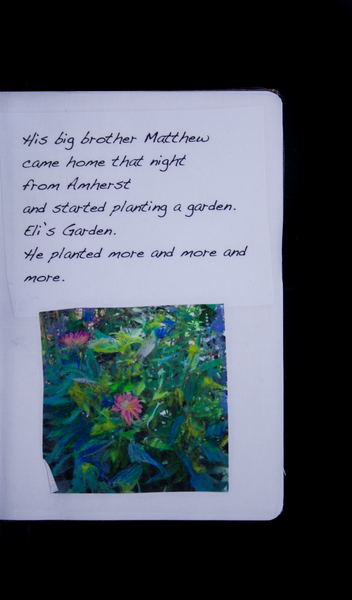 His big brother Matthew
came home that night
from Amherst
and started planting a garden.
Eli's Garden.
He planted more and more and
more.